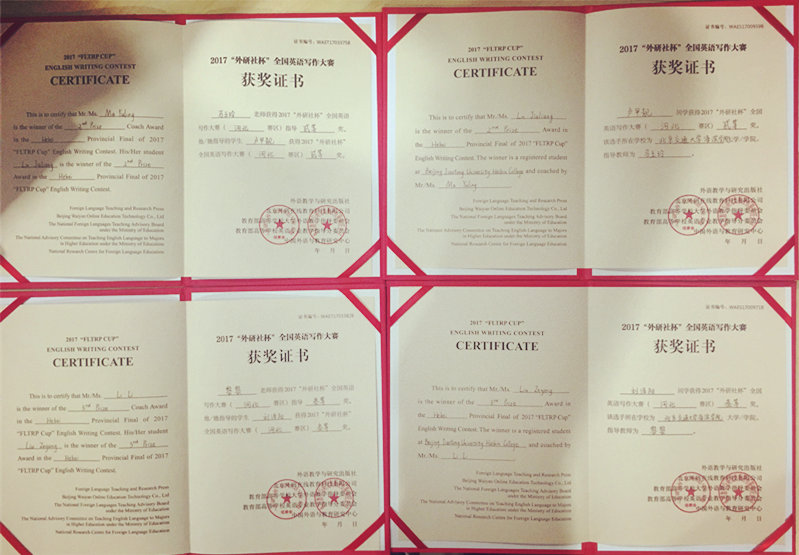 2017 "FLTRP CUP"
ENGLISH WRITING CONTEST
CERTIFICATE
This is to certify that Mr./Ms. Ma Yuling
is the winner of the 2nd Prize Coach Award
in the Hebei Provincial Final of 2017
"FLTRP Cup" English Writing Contest. His/Her student
Lu Jialiang is the winner of the 2nd Prize
Award in the Hebei Provincial Final of 2017
"FLTRP Cup" English Writing Contest.
Foreign Language Teaching and Research Press
Beijing Waiyan Online Education Technology Co., Ltd
The National Foreign Languages Teaching Advisory Board
under the Ministry of Education
The National Advisory Committee on Teaching English Language to Majors
in Higher Education under the Ministry of Education
National Research Centre for Foreign Language Education
2017 "外研社杯" 全国英语写作大赛
获奖证书
老师获得2017 "外研社杯" 全国英语
写作大赛（ 河北 赛区）指导 贰等 奖。
他/她指导的学生 获得2017 "外研社杯"
全国英语写作大赛（ 河北 赛区） 贰等 奖。
外语教学与研究出版社
中国外语与教育研究中心
年 月 日
2017 "FLTRP CUP"
ENGLISH WRITING CONTEST
CERTIFICATE
This is to certify that Mr./Ms. Lu Jialiang
is the winner of the 2nd Prize Award in
the Hebei Provincial Final of 2017 "FLTRP
Cup" English Writing Contest. The winner is a registered student
at Beijing Jiaotong University Haibin College and coached by
Mr./Ms. Ma Yuling
Foreign Language Teaching and Research Press
Beijing Waiyan Online Education Technology Co., Ltd
The National Foreign Languages Teaching Advisory Board
under the Ministry of Education
The National Advisory Committee on Teaching English Language to Majors
in Higher Education under the Ministry of Education
National Research Centre for Foreign Language Education
2017 "外研社杯" 全国英语写作大赛
获奖证书
同学获得2017 "外研社杯" 全国
英语写作大赛（ 河北 赛区） 贰等 奖。
该选手所在学校为 北京交通大学海滨学院 大学/学院，
指导教师为
外语教学与研究出版社
中国外语与教育研究中心
年 月 日
2017 "FLTRP CUP"
ENGLISH WRITING CONTEST
CERTIFICATE
This is to certify that Mr./Ms. Li Li
is the winner of the 3rd Prize Coach Award
in the Hebei Provincial Final of 2017
"FLTRP Cup" English Writing Contest. His/Her student
Liu Zeyang is the winner of the 3rd Prize
Award in the Hebei Provincial Final of 2017
"FLTRP Cup" English Writing Contest.
Foreign Language Teaching and Research Press
Beijing Waiyan Online Education Technology Co., Ltd
The National Foreign Languages Teaching Advisory Board
under the Ministry of Education
The National Advisory Committee on Teaching English Language to Majors
in Higher Education under the Ministry of Education
National Research Centre for Foreign Language Education
2017 "外研社杯" 全国英语写作大赛
获奖证书
老师获得2017 "外研社杯" 全国英语
写作大赛（ 河北 赛区）指导 叁等 奖。
他/她指导的学生 获得2017 "外研社杯"
全国英语写作大赛（ 河北 赛区） 叁等 奖。
外语教学与研究出版社
中国外语与教育研究中心
年 月 日
2017 "FLTRP CUP"
ENGLISH WRITING CONTEST
CERTIFICATE
This is to certify that Mr./Ms. Liu Zeyang
is the winner of the 3rd Prize Award in
the Hebei Provincial Final of 2017 "FLTRP
Cup" English Writing Contest. The winner is a registered student
at Beijing Jiaotong University Haibin College and coached by
Mr./Ms. Li Li
Foreign Language Teaching and Research Press
Beijing Waiyan Online Education Technology Co., Ltd
The National Foreign Languages Teaching Advisory Board
under the Ministry of Education
The National Advisory Committee on Teaching English Language to Majors
in Higher Education under the Ministry of Education
National Research Centre for Foreign Language Education
2017 "外研社杯" 全国英语写作大赛
获奖证书
同学获得2017 "外研社杯" 全国
英语写作大赛（ 河北 赛区） 叁等 奖。
该选手所在学校为 北京交通大学海滨学院 大学/学院，
指导教师为
外语教学与研究出版社
中国外语与教育研究中心
年 月 日